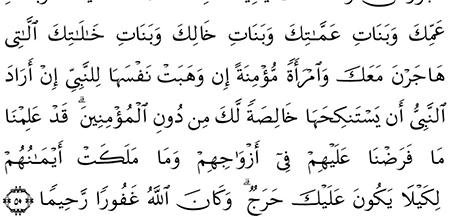 عَمِّكَ وَبَنَاتِ عَمَّـٰتِكَ وَبَنَاتِ خَالِكَ وَبَنَاتِ خَـٰلَـٰتِكَ ٱلَّـٰتِى
هَاجَرْنَ مَعَكَ وَٱمْرَأَةً مُّؤْمِنَةً إِن وَهَبَتْ نَفْسَهَا لِلنَّبِىِّ إِنْ أَرَادَ
ٱلنَّبِىُّ أَن يَسْتَنكِحَهَا خَالِصَةً لَّكَ مِن دُونِ ٱلْمُؤْمِنِينَ ۗ قَدْ عَلِمْنَا
مَا فَرَضْنَا عَلَيْهِمْ فِىٓ أَزْوَٰجِهِمْ وَمَا مَلَكَتْ أَيْمَـٰنُهُمْ
لِكَيْلَا يَكُونَ عَلَيْكَ حَرَجٌ ۗ وَكَانَ ٱللَّهُ غَفُورًا رَّحِيمًا ۝٥٠